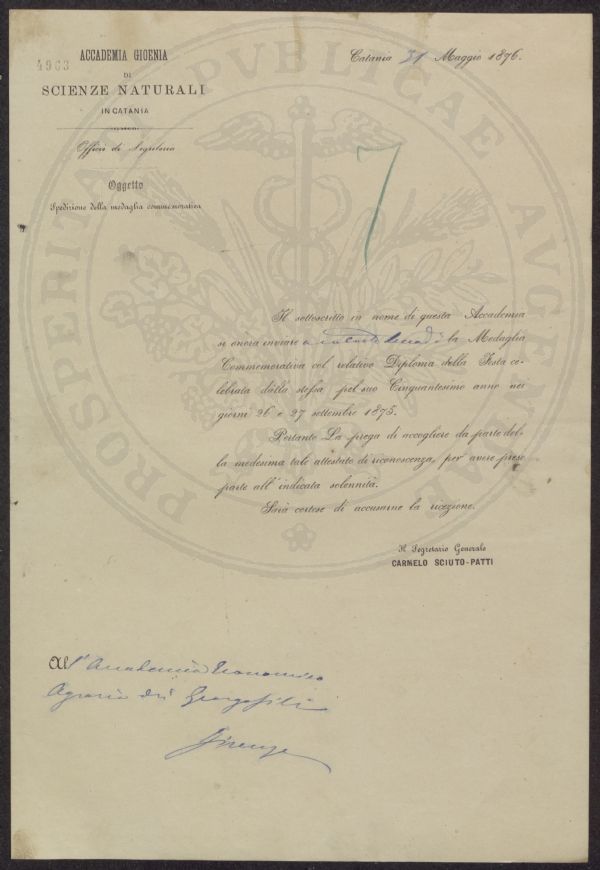 4963
ACCADEMIA GIOENIA
DI
SCIENZE NATURALI
IN CATANIA
Officio di Segreteria
Oggetto
Spedizione della medaglia commemorativa
Catania 31 Maggio 1876.
7
Il sottoscritto in nome di questa Accademia
si onora inviare a la Medaglia
Commemorativa col relativo Diploma della Festa ce-
lebrata dalla stessa pel suo Cinquantesimo anno nei
giorni 26 e 27 settembre 1875.
Pertanto La prega di accogliere da parte del-
la medesima tale attestato di riconoscenza, per avere preso
parte all'indicata solennità.
Sarà cortese di accusarne la ricezione.
Il Segretario Generale
CARMELO SCIUTO-PATTI
All'Accademia Economico
Agraria dei Georgofili
Firenze
PROSPERITATI PUBLICAE AUGENDAE